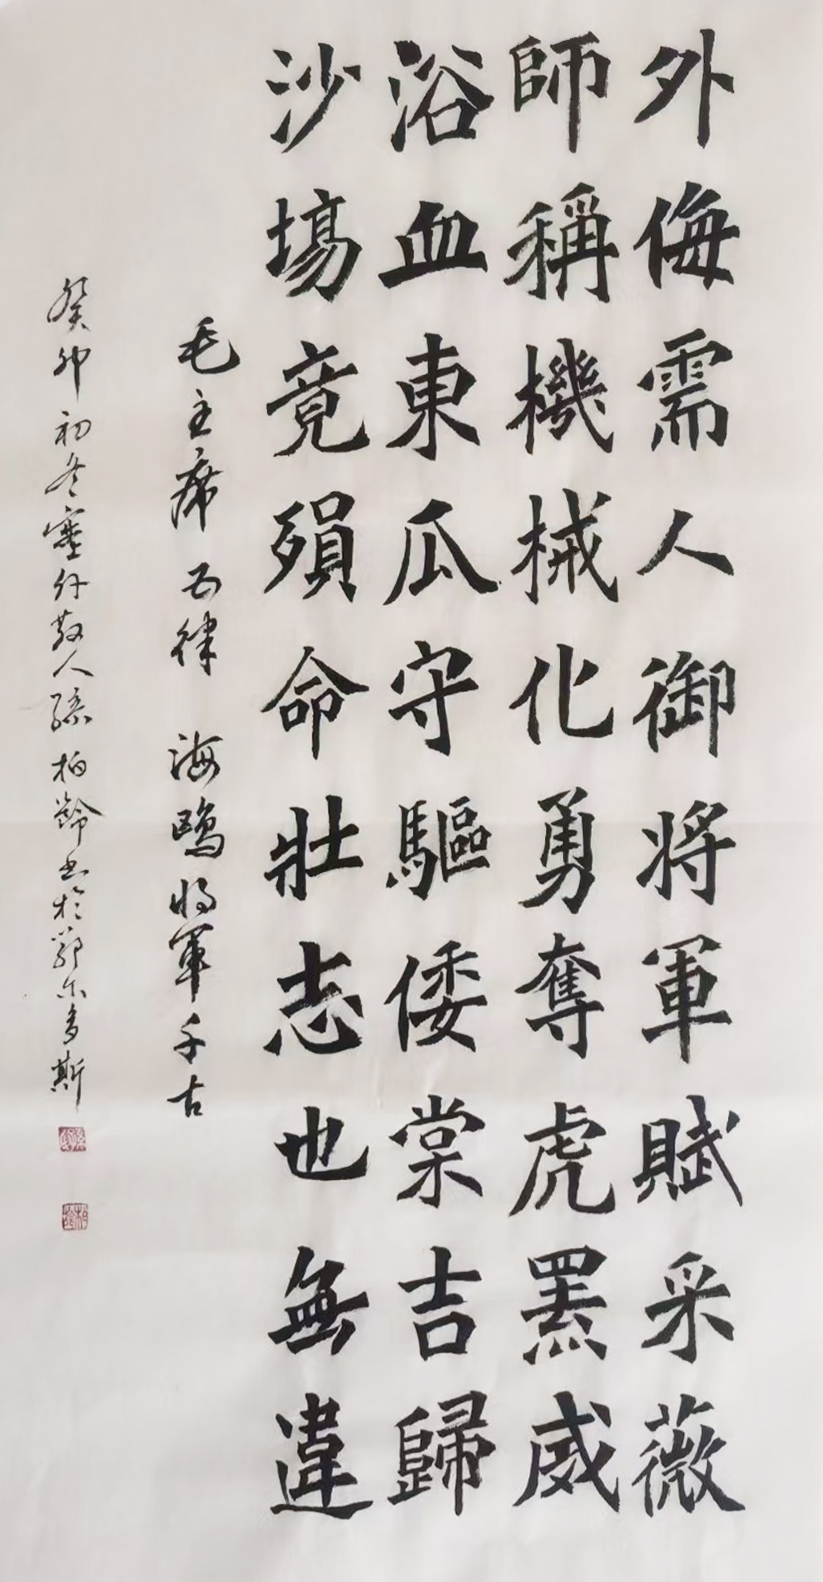 外侮需人御将軍賦采薇
師稱機械化勇奪虎羆威
浴血東瓜守驅倭棠吉歸
沙場竟殞命壯志也無違
毛主席五律 海鷗将軍千古
癸卯初冬塞外散人孫柏齡書於鄂尔多斯